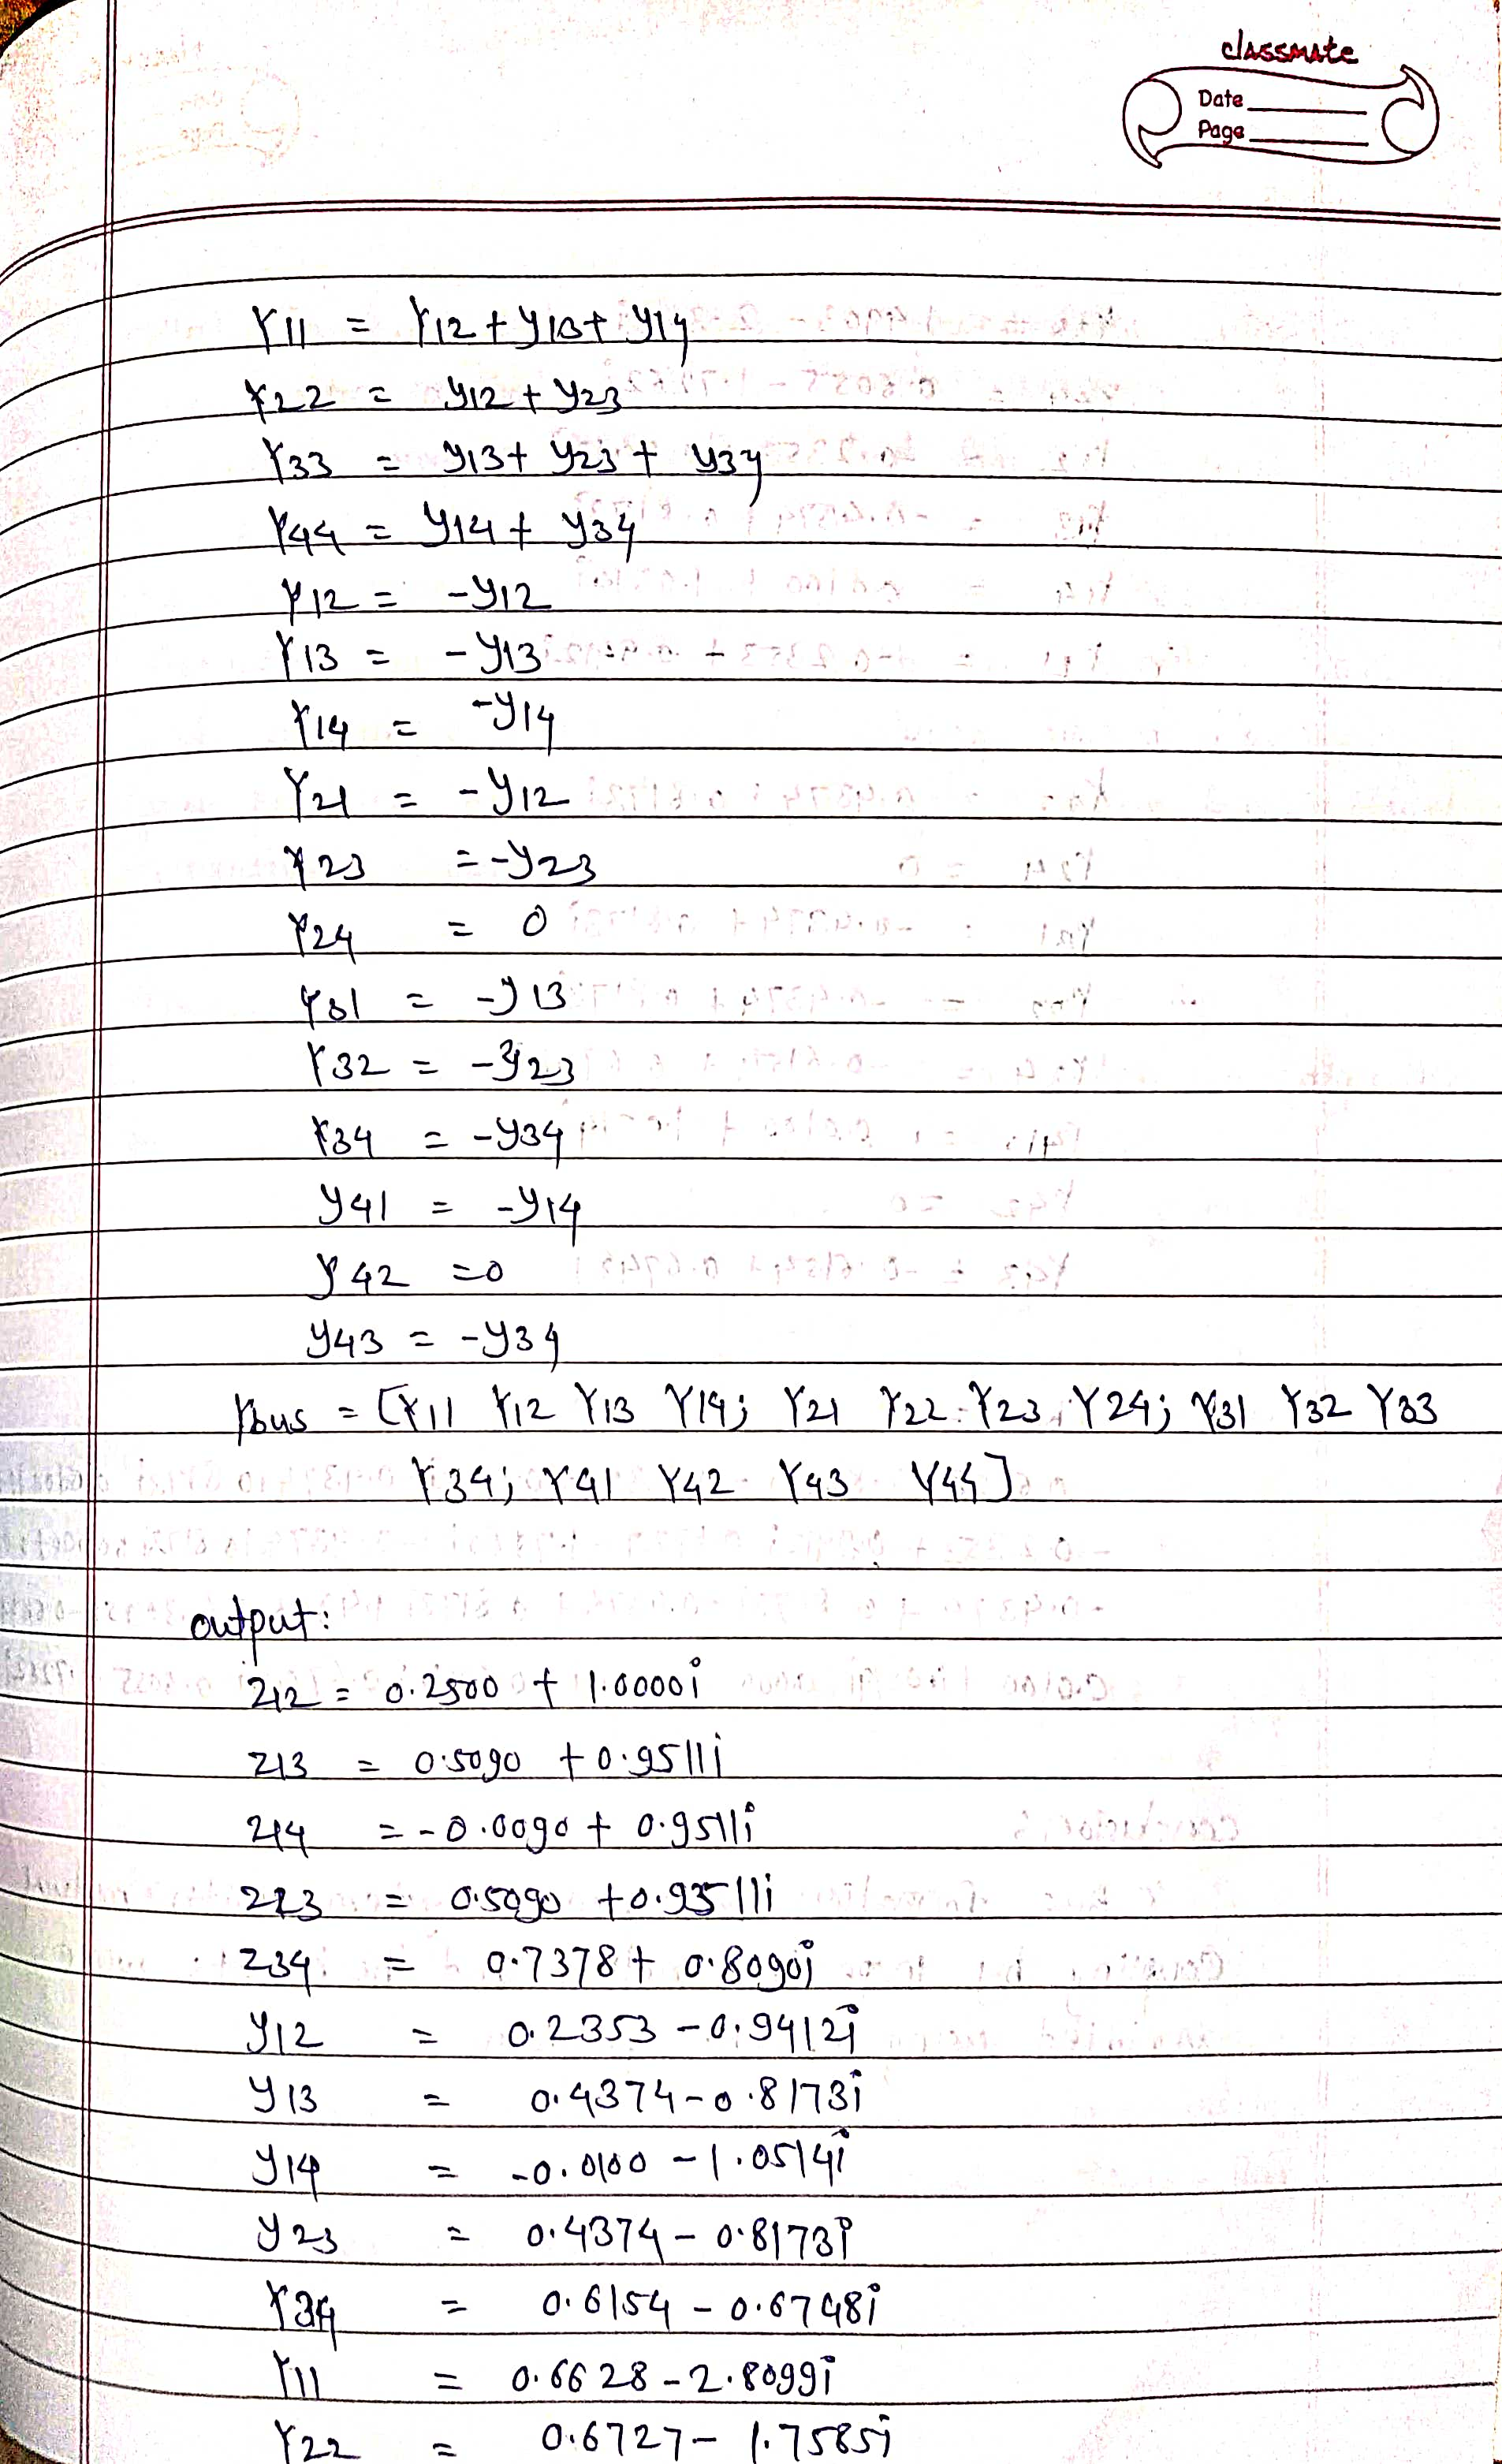 classmate
Date
Page
Y11 = Y12 + y13 + y14
Y22 = y12 + y23
Y33 = y13 + y23 + y34
Y44 = y14 + y34
Y12 = -y12
Y13 = -y13
Y14 = -y14
Y21 = -y12
Y23 = -y23
Y24 = 0
Y31 = -y13
Y32 = -y23
Y34 = -y34
y41 = -y14
Y42 = 0
y43 = -y34
Ybus = [Y11 Y12 Y13 Y14; Y21 Y22 Y23 Y24; Y31 Y32 Y33
Y34; Y41 Y42 Y43 Y44]
output:
z12 = 0.2500 + 1.0000i
z13 = 0.5090 + 0.9511i
z14 = -0.0090 + 0.9511i
z23 = 0.5090 + 0.9511i
z34 = 0.7378 + 0.8090i
y12 = 0.2353 - 0.9412i
y13 = 0.4374 - 0.8173i
y14 = -0.0100 - 1.0514i
y23 = 0.4374 - 0.8173i
Y34 = 0.6154 - 0.6748i
Y11 = 0.6628 - 2.8099i
Y22 = 0.6727 - 1.7585i